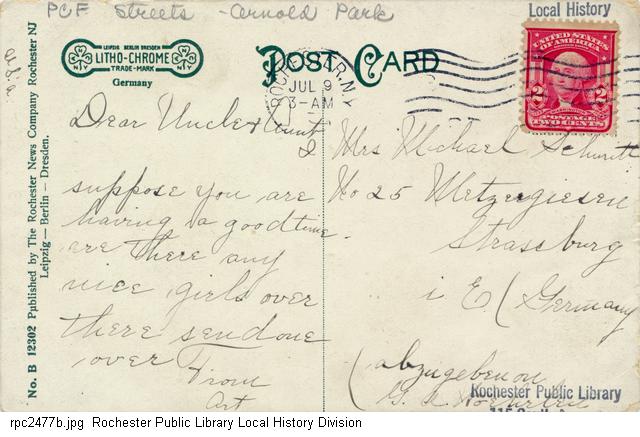 PCF Streets - Arnold Park
Local History
LEIPZIG BERLIN DRESDEN
LITHO-CHROME
TRADE-MARK
Germany
POST CARD
JUL 9
3-AM
N.Y.
UNITED STATES
OF AMERICA
2 2
POSTAGE
TWO CENTS
No. B 12302 Published by The Rochester News Company Rochester NJ
Leipzig — Berlin — Dresden.
Dear Uncle & Aunt
I
suppose you are
having a good time
are there any
nice girls over
there send one
over From
Art
Mrs Michael
No 25 Metzergiesen
Strassburg
i E (Germany
(abzugeben
Rochester Public Library
rpc2477b.jpg Rochester Public Library Local History Division